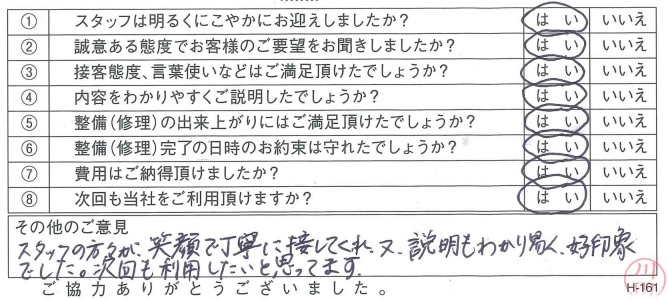 ① スタッフは明るくにこやかにお迎えしましたか? はい いいえ
② 誠意ある態度でお客様のご要望をお聞きしましたか? はい いいえ
③ 接客態度、言葉使いなどはご満足頂けたでしょうか? はい いいえ
④ 内容をわかりやすくご説明したでしょうか? はい いいえ
⑤ 整備(修理)の出来上がりにはご満足頂けたでしょうか? はい いいえ
⑥ 整備(修理)完了の日時のお約束は守れたでしょうか? はい いいえ
⑦ 費用はご納得頂けましたか? はい いいえ
⑧ 次回も当社をご利用頂けますか? はい いいえ
その他のご意見
スタッフの方々が、笑顔で丁寧に接してくれ、又、説明もわかり易く、好印象
でした。次回も利用したいと思ってます。
ご協力ありがとうございました。
H-161